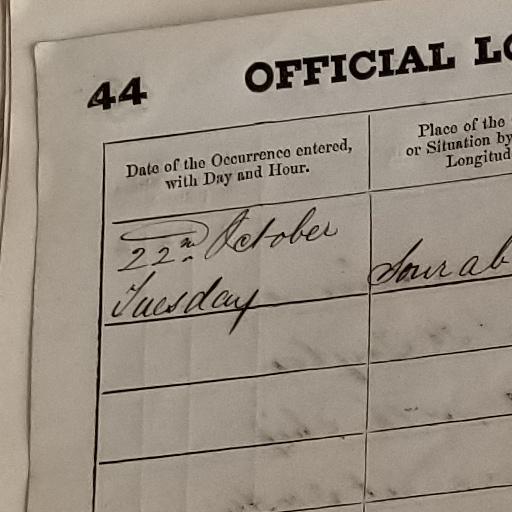 44 OFFICIAL LO
Date of the Occurrence entered,
with Day and Hour.
Place of the
or Situation by
Longitud
22nd October
Tuesday
Sourab